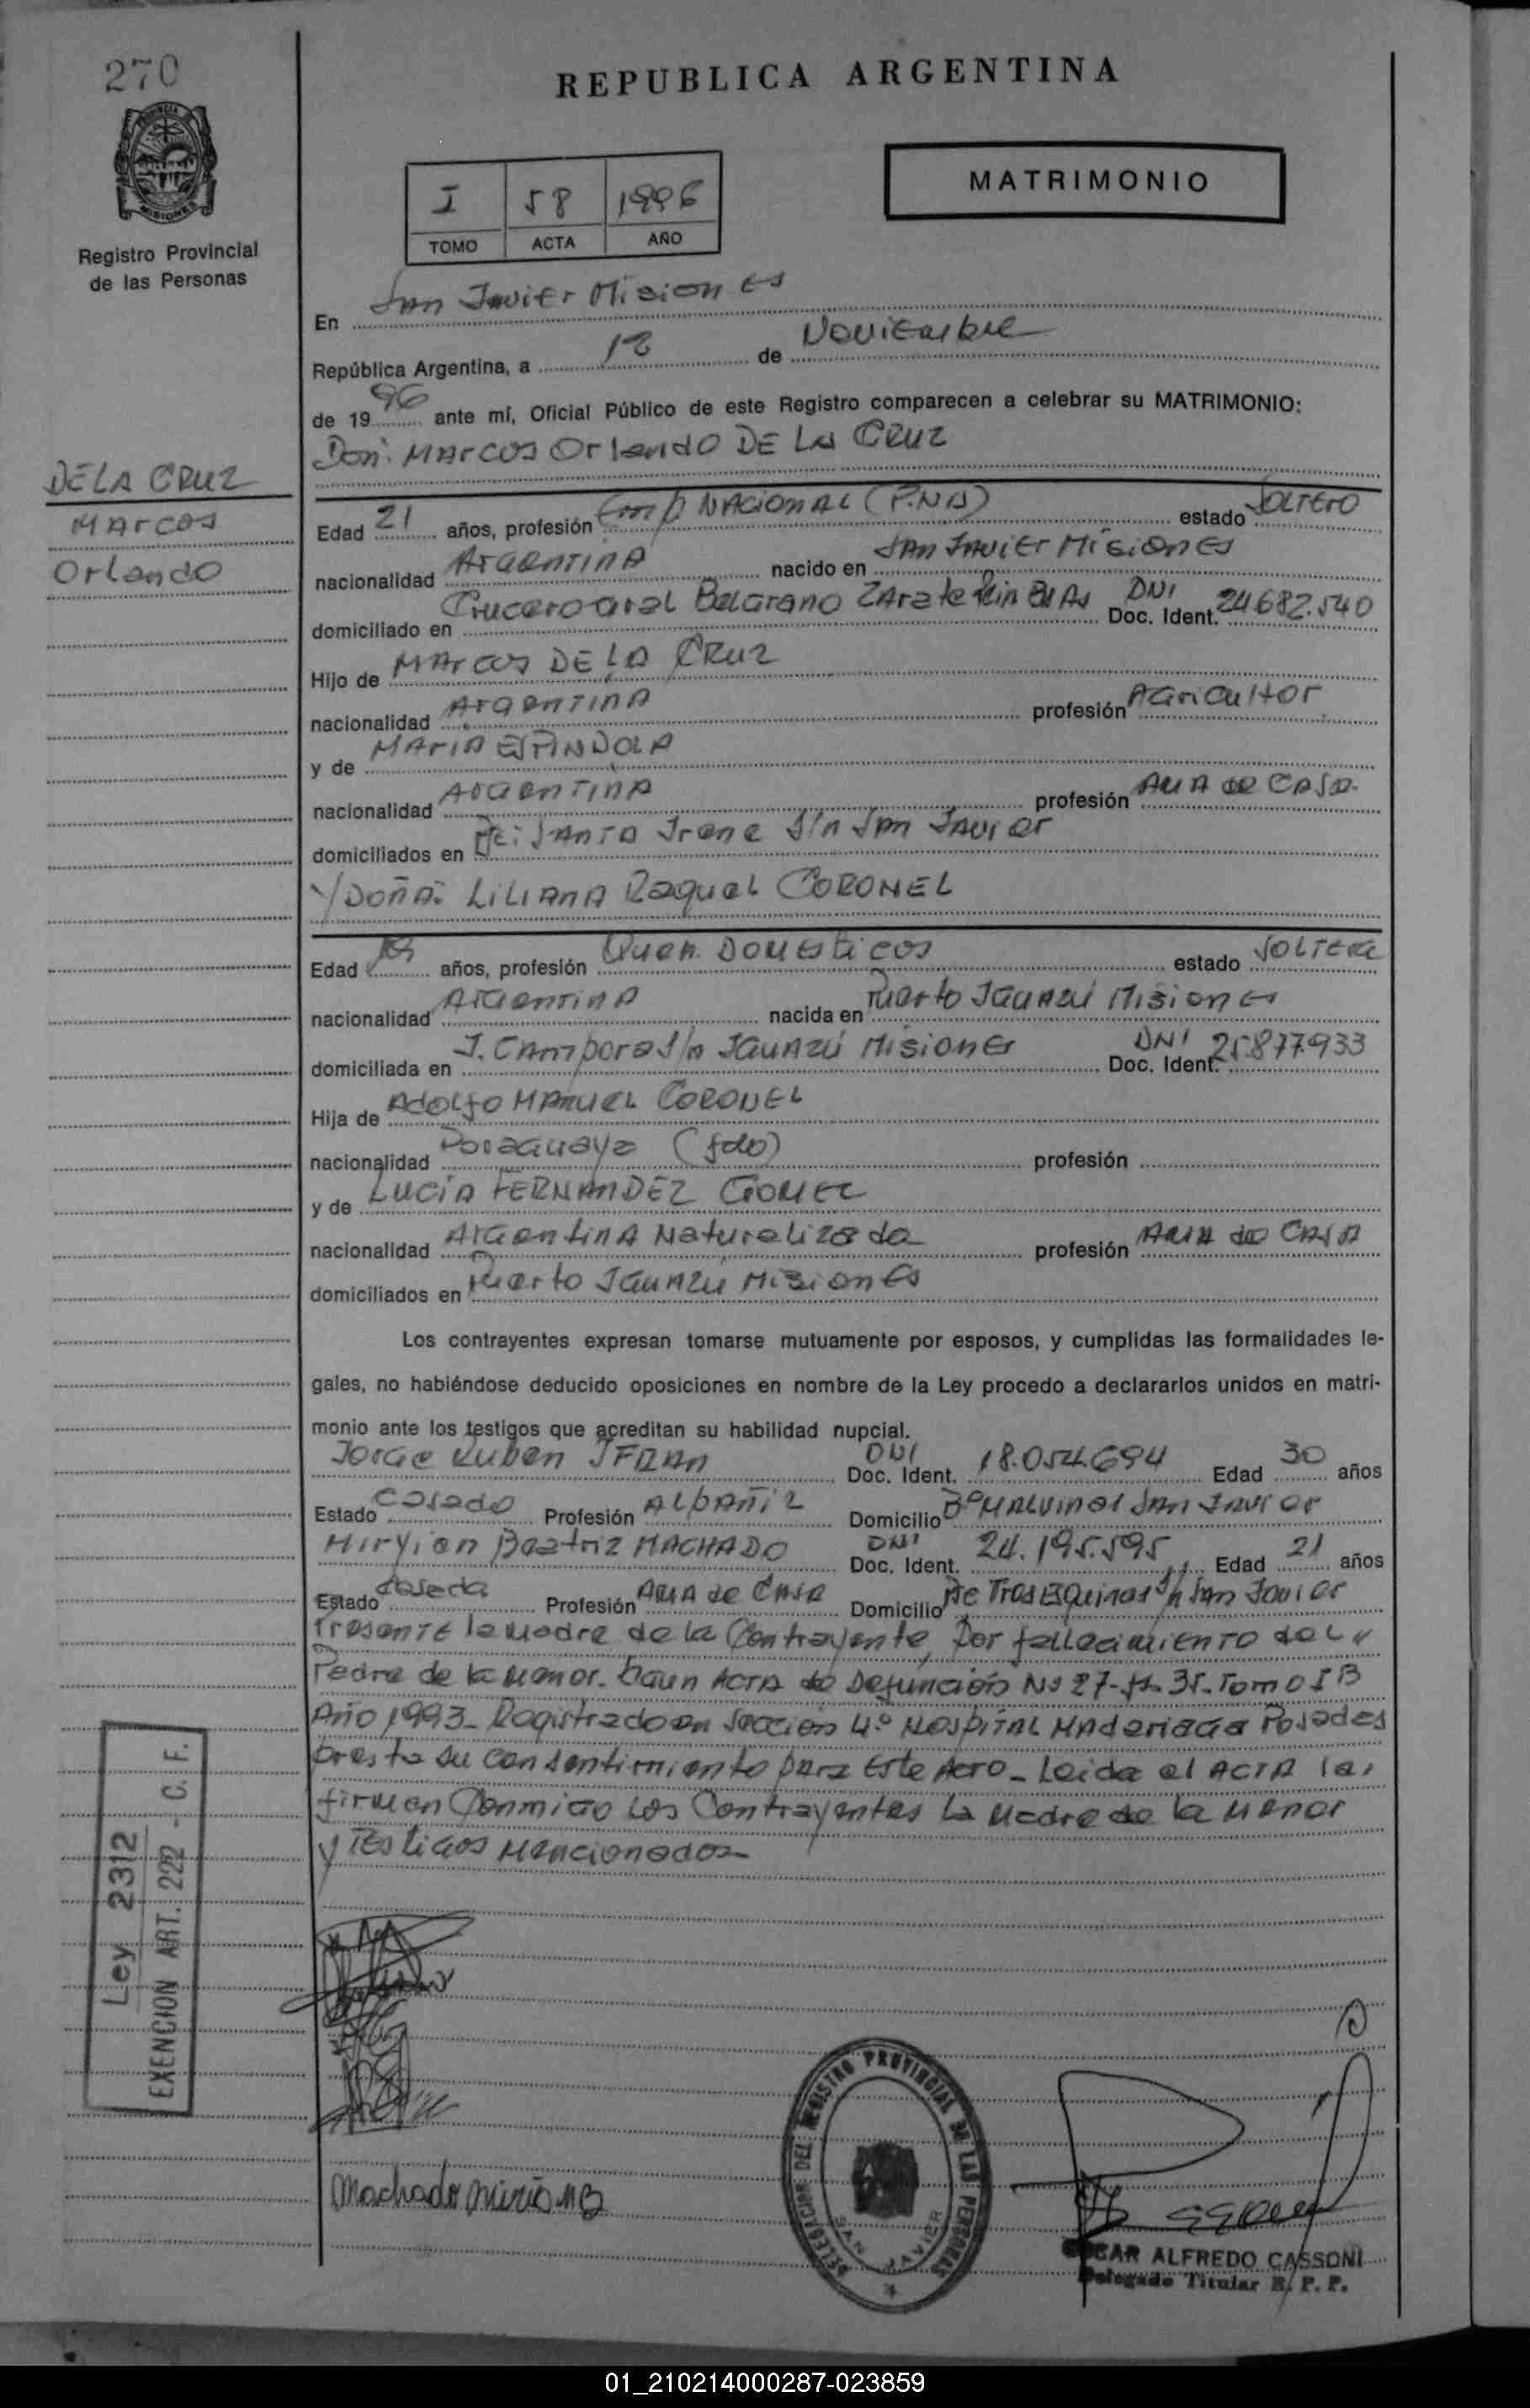 270
REPUBLICA ARGENTINA
PROVINCIA DE MISIONES
Registro Provincial
de las Personas
I 58 1996
TOMO ACTA AÑO
MATRIMONIO
En San Javier Misiones
República Argentina, a 12 de Noviembre
de 1996 ante mí, Oficial Público de este Registro comparecen a celebrar su MATRIMONIO:
Don: MARCOS Orlando DE LA CRUZ
DE LA CRUZ
MARCOS
Orlando
Edad 21 años, profesión Emp NACIONAL (P.N.A) estado SOLTERO
nacionalidad ARGENTINA nacido en SAN JAVIER MISIONES
domiciliado en Crucero Gral Belgrano ZArate Bs As Doc. Ident. DNI 24682.540
Hijo de MArcos DE LA CRUZ
nacionalidad ArgENTINA profesión Agricultor
y de MARIA ESPINDOLA
nacionalidad ARGENTINA profesión AMA de CASA.
domiciliados en SANTA Irene S/n San Javier
Y DOÑA: LILIANA Raquel CORONEL
Edad años, profesión Queh. Domesticos estado SOLTERA
nacionalidad ArgentinA nacida en Puerto Iguazú Misiones
domiciliada en J. CAmpora S/n Iguazú Misiones Doc. Ident. DNI 25.877.933
Hija de Adolfo MANUEL CORONEL
nacionalidad Paraguaya (fdo) profesión
y de LUCIA FERNANDEZ GOMEZ
nacionalidad ArgentinA Naturalizada profesión AMA de CASA
domiciliados en Puerto Iguazú Misiones
Los contrayentes expresan tomarse mutuamente por esposos, y cumplidas las formalidades le-
gales, no habiéndose deducido oposiciones en nombre de la Ley procedo a declararlos unidos en matri-
monio ante los testigos que acreditan su habilidad nupcial.
Jorge Ruben IFRAn Doc. Ident. DNI 18.054.694 Edad 30 años
Estado Casado Profesión ALbAÑiL Domicilio Bº MALvinas San Javier
Miryian Beatriz MACHADO Doc. Ident. DNI 24.195.595 Edad 21 años
Estado Casada Profesión AMA de CASA Domicilio Tres Esquinas S/n San Javier
Presente la Madre de la Contrayente, Por fallecimiento del
Padre de la Menor. Según Acta de Defunción Nº 27- Fº 35- Tomo I B
Año 1993- Registrado en Sección 4º HOSPITAL MADariaga Posadas
presta su consentimiento para Este Acto- Leida el ACTA la,
firman Conmigo Los Contrayentes La Madre de la Menor
y Testigos Mencionados-
Ley 2312
EXENCION ART. 222 - C. F.
Machado Mirian B
DELEGACION DEL REGISTRO PROVINCIAL DE LAS PERSONAS
SAN JAVIER
OSCAR ALFREDO CASSONI
Delegado Titular R. P. P.
01_210214000287-023859